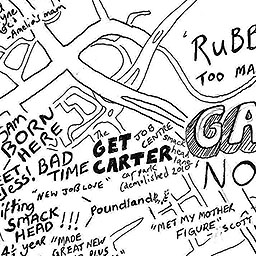 Amelia's man
'RUBB
TOO MA
I am
BORN
HERE
BAD
TIME
The
GET
CARTER
car park
(demolished 2010)
JOB
CENTRE
smack
head
land
GA
'NO
"NEW JOB LOVE"
Poundland
SMACK
HEAD !!!
year
"MADE
GREAT NEW
PLUS
"MET MY MOTHER
FIGURE"
SCOTT